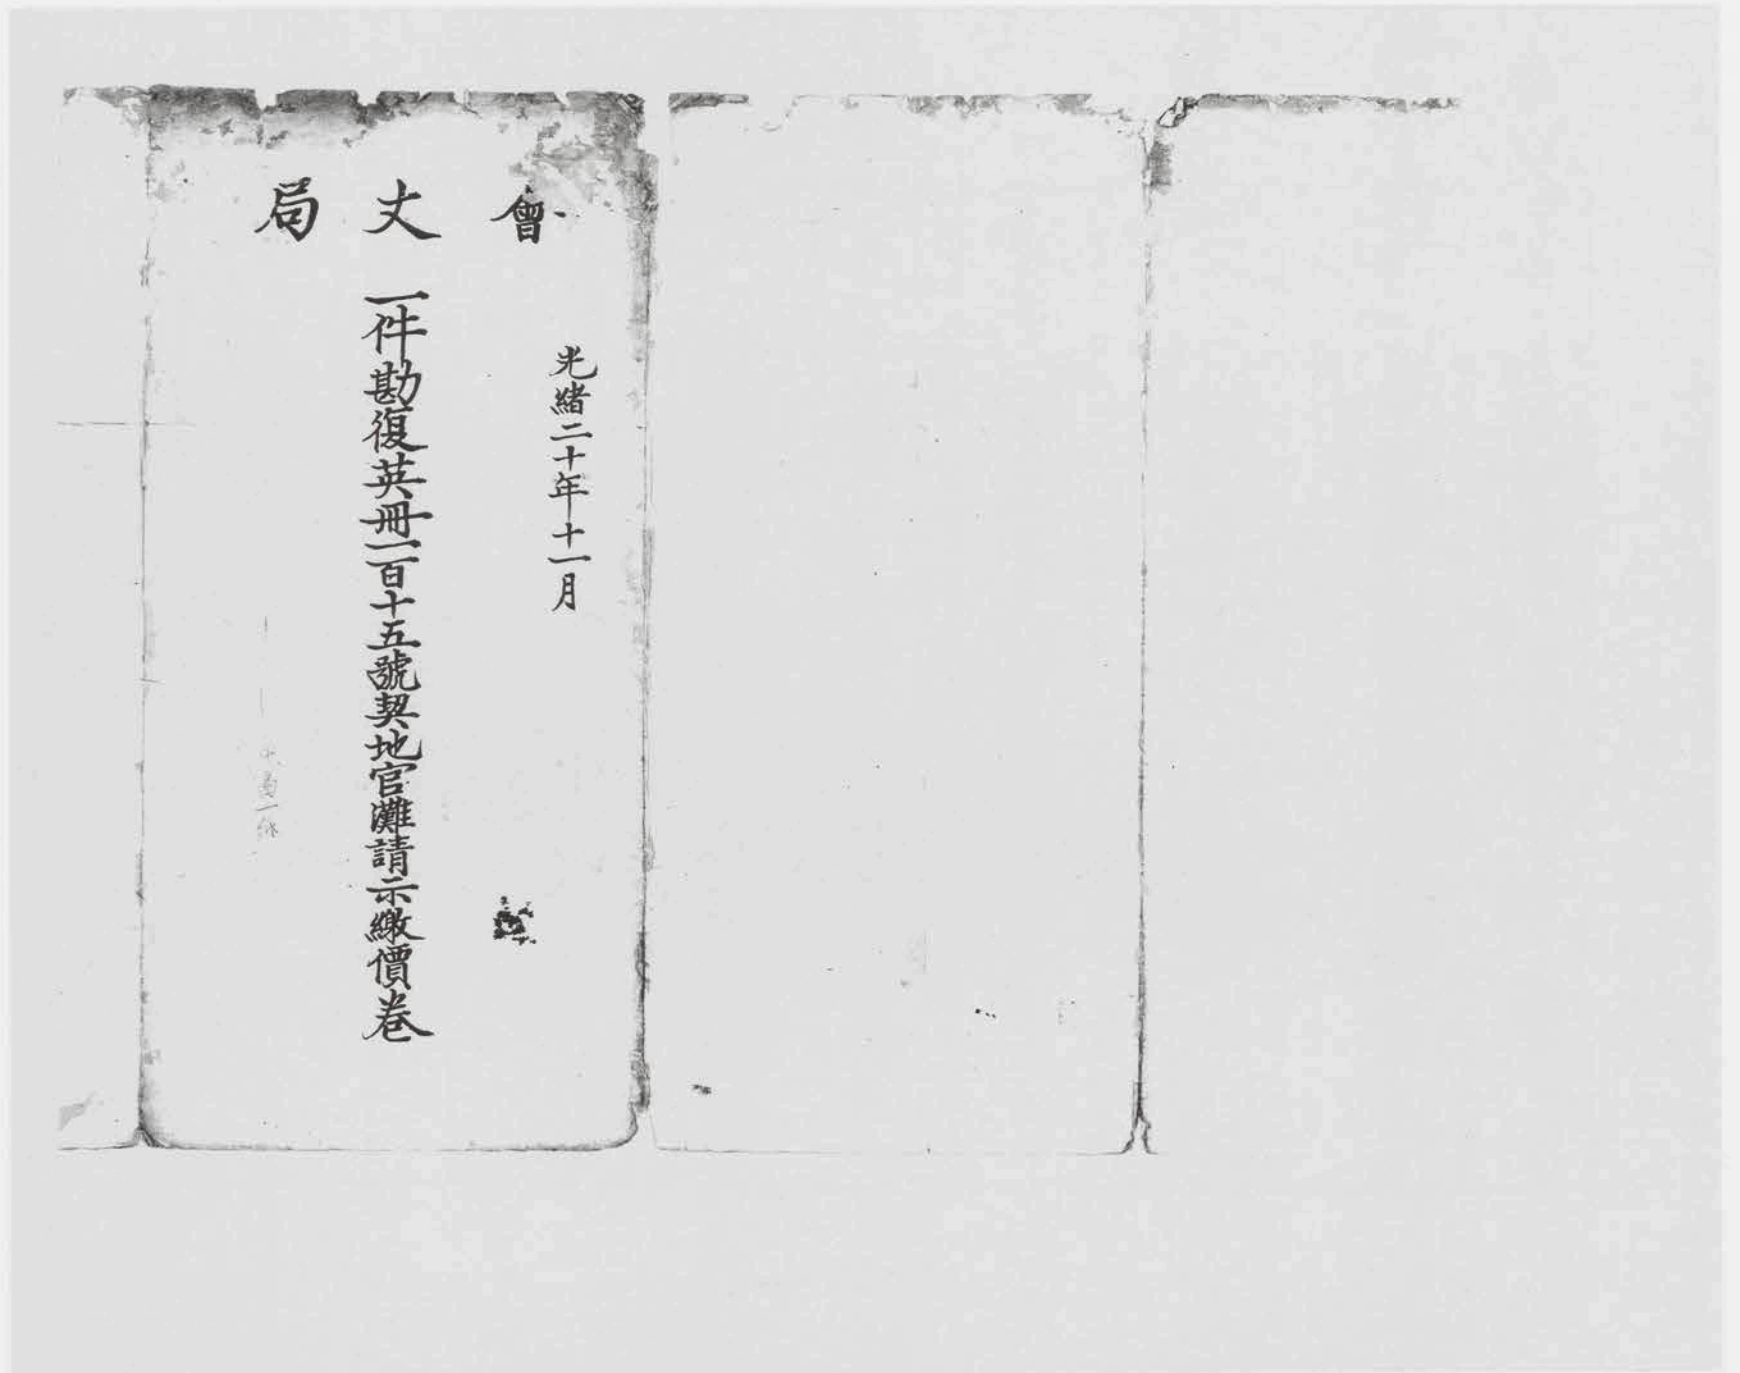 會丈局
光緒二十年十一月
一件勘復英冊一百十五號契地官灘請示繳價卷